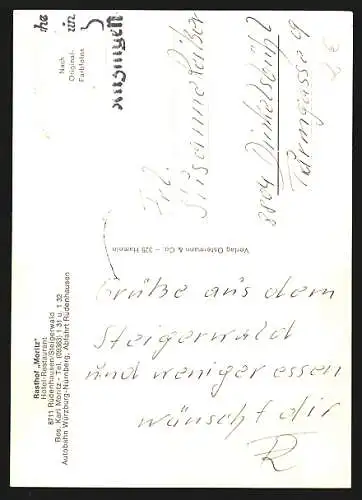 Rasthof „Moritz"
Hotel-Restaurant
8711 Rüdenhausen/Steigerwald
Bes. Karl Moritz - Tel. (09383) 1 31 u. 1 32
Autobahn Würzburg-Nürnberg, Abfahrt Rüdenhausen
Grüße aus dem
Steigerwald
und weniger essen
wünscht dir
R
Verlag Ostermann & Co. – 325 Hameln
Nach
Original-
Farbfotos
Frl.
Susanne
8804 Dinkelsbühl
Turmgasse 9